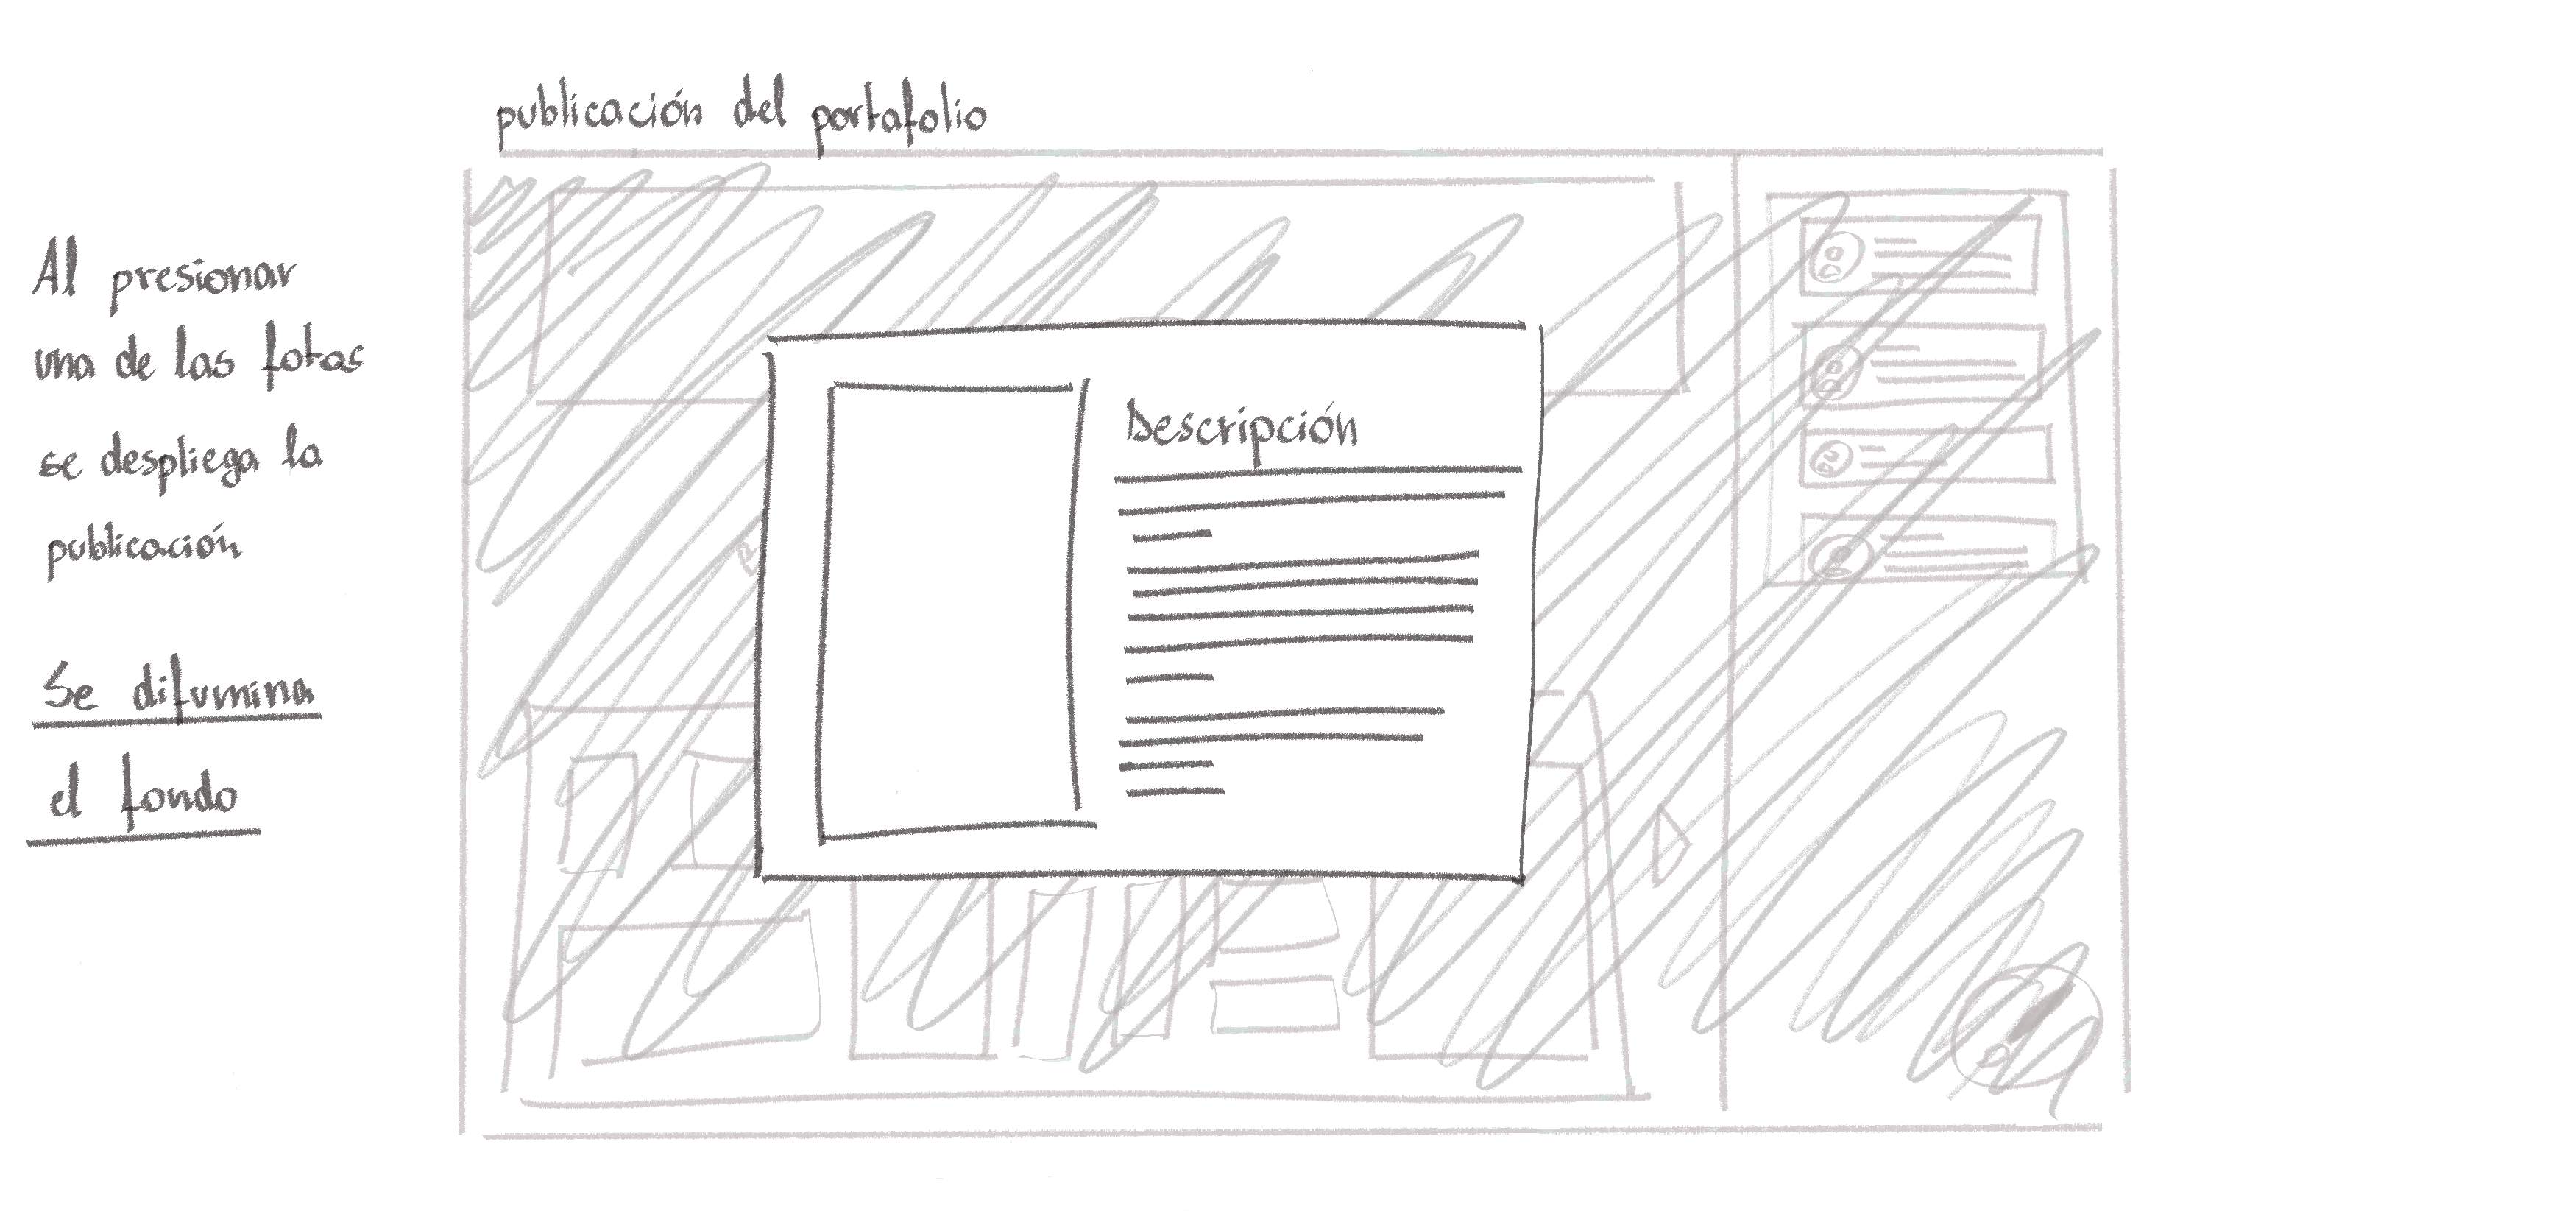 publicación del portafolio
Al presionar
una de las fotos
se despliega la
publicación
Se difumina
el fondo
Descripción